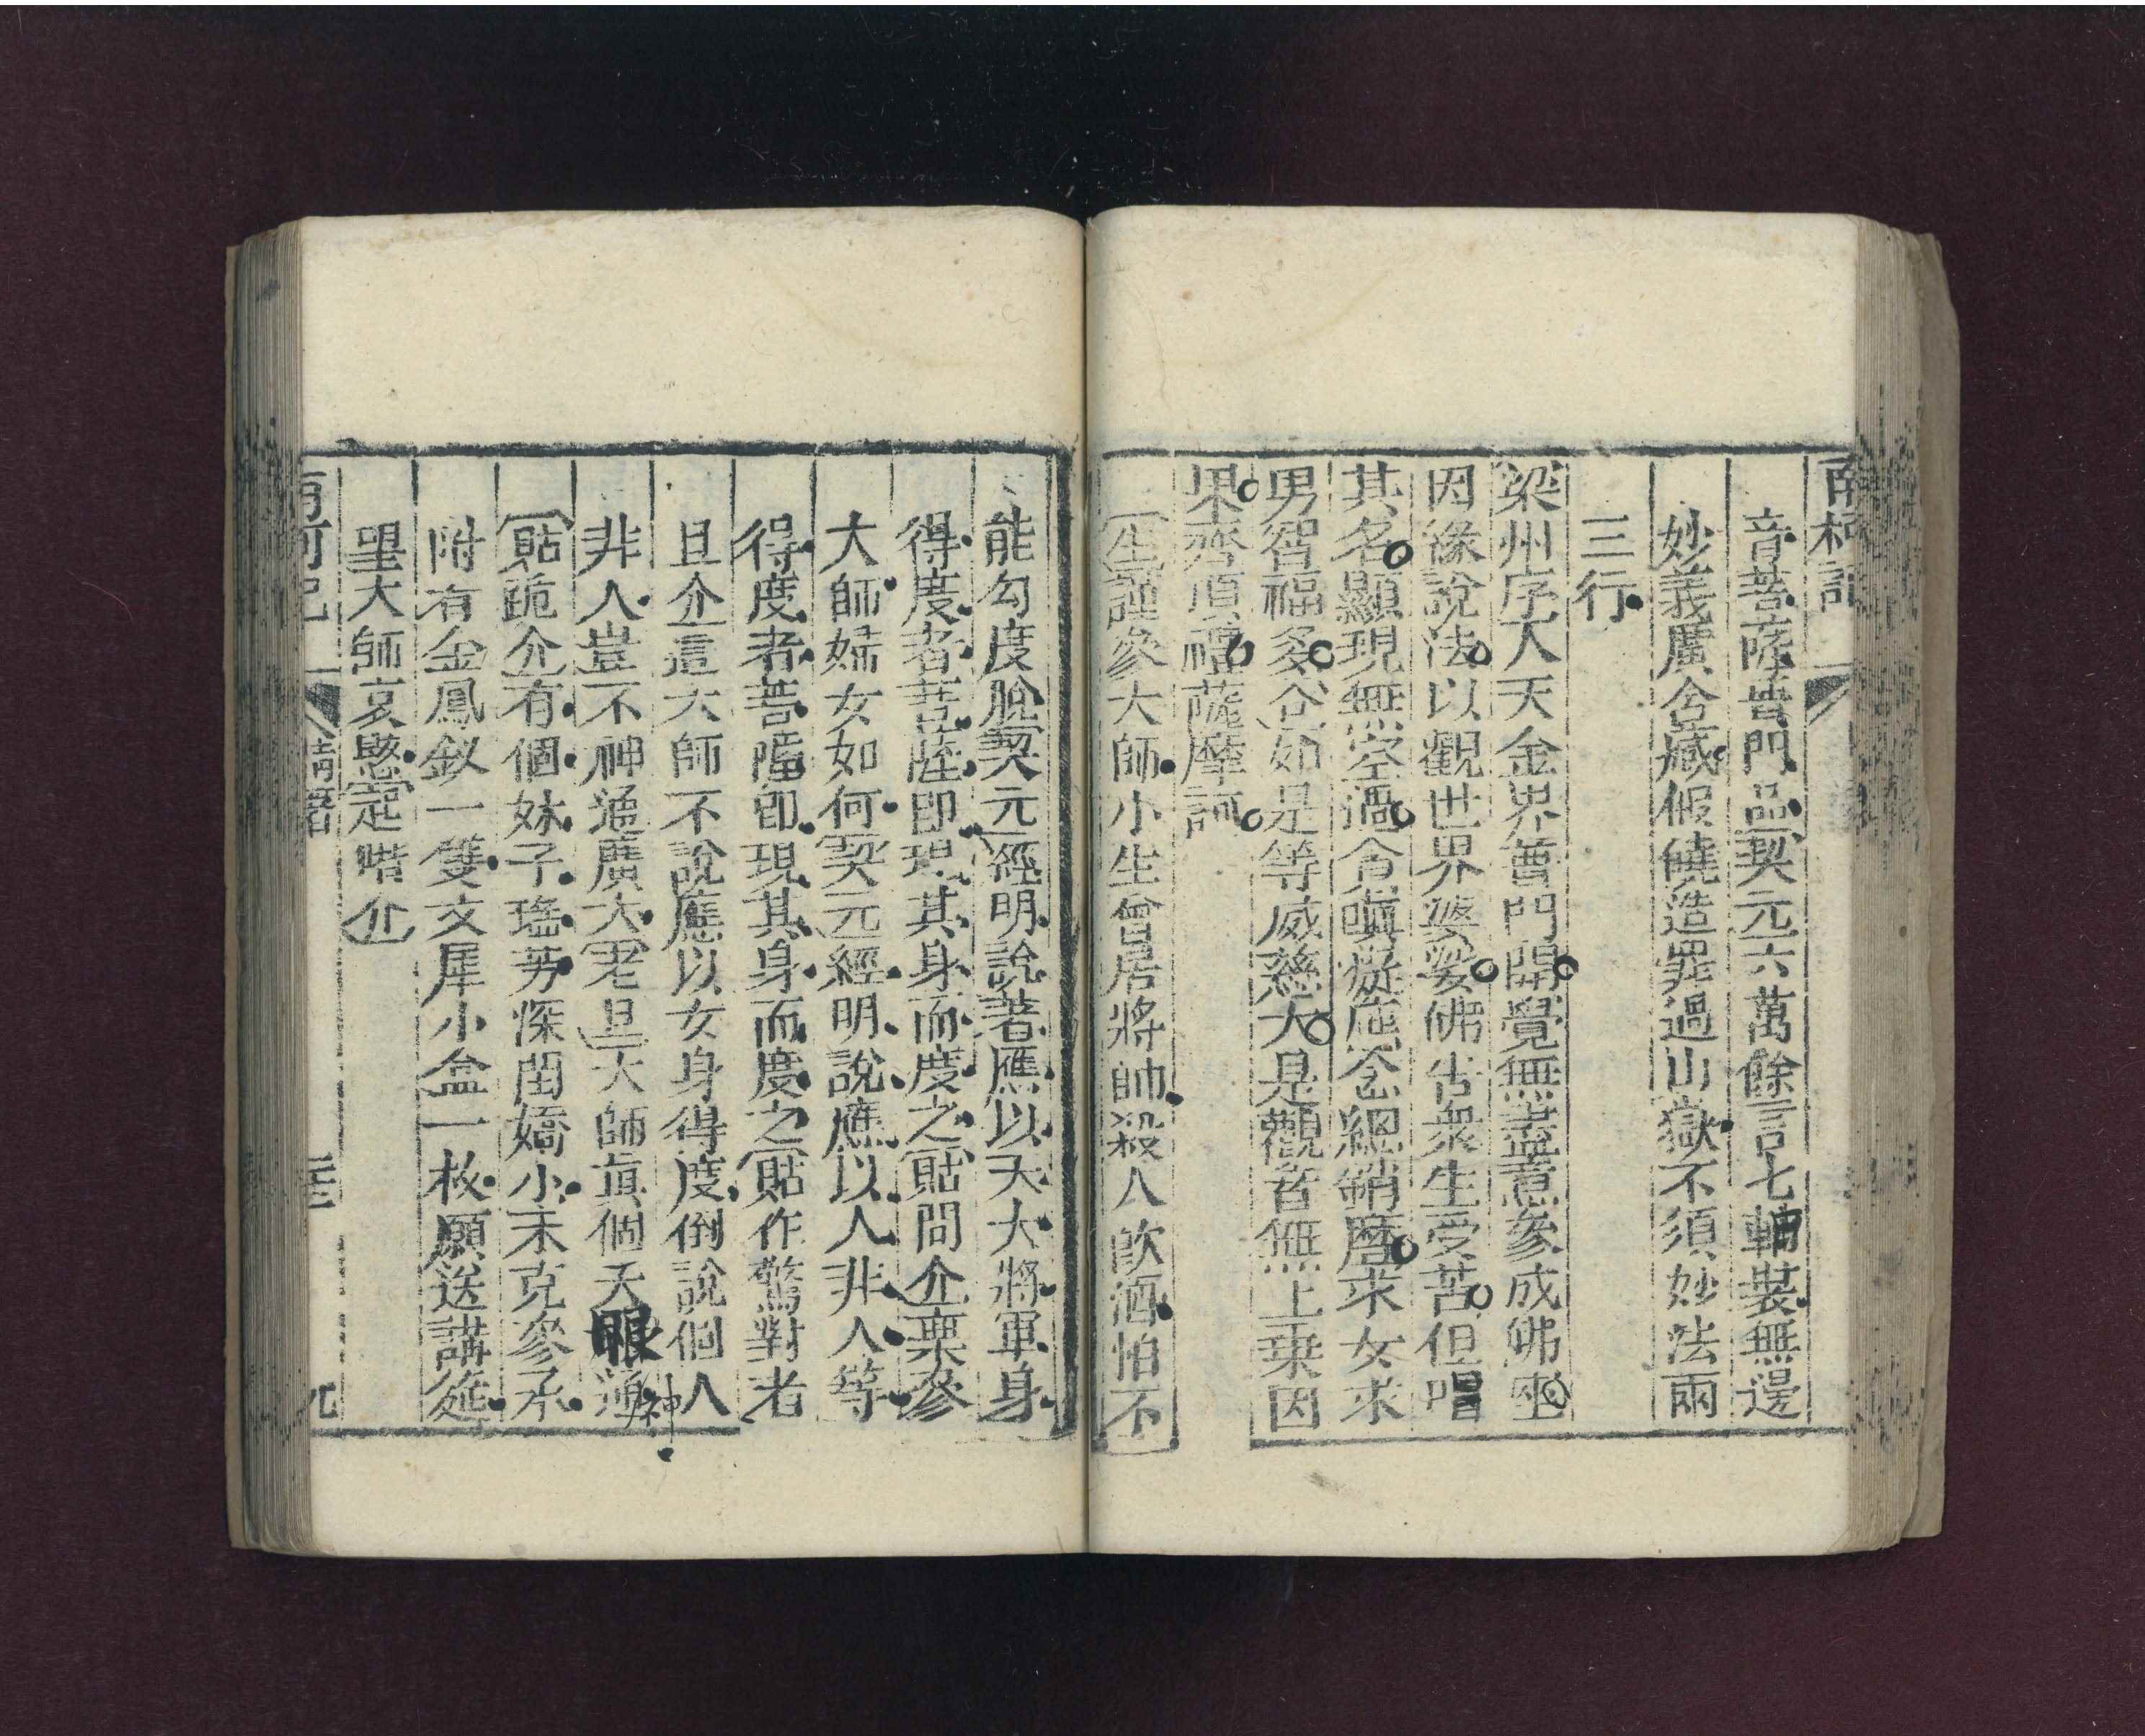 南柯記
音菩薩普門品契元六萬餘言七軸裝無邊
妙義廣含藏假饒造罪過山嶽不須妙法兩
三行
梁州序人天金界普門開覺無盡意參成佛坐
因緣說法以觀世界婆娑佛告衆生受苦但唱
其名顯現無空過貪嗔癡應念總銷磨求女求
男智福多合如是等威慈大是觀音無上乗因
果齊頂禮薩摩訶
生謹參大師小生曾居將帥殺人飲酒怕不
能勾度脫契元經明說著應以天大將軍身
得度者菩薩即現其身而度之貼問介稟參
大師婦女如何契元經明說應以人非人等
得度者菩薩卽現其身而度之貼作驚對老
旦介這大師不說應以女身得度倒說個人
非人豈不神通廣大老旦大師真個天眼通神
貼跪介有個妹子瑤芳深閨嬌小未克參承
附有金鳳釵一雙文犀小盒一枚願送講筵
望大師哀愍定喈介
南柯記
情著